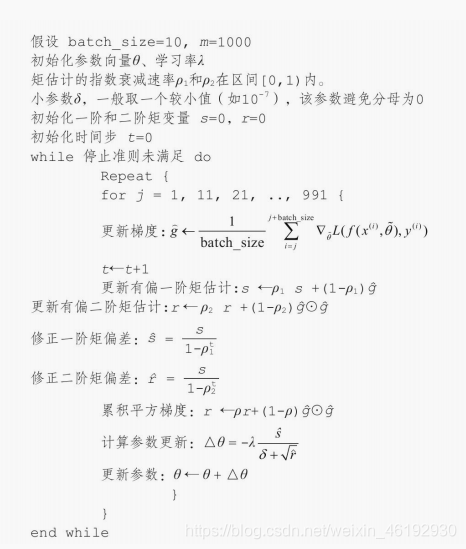 假设 batch_size=10, m=1000
初始化参数向量θ、学习率λ
矩估计的指数衰减速率ρ₁和ρ₂在区间[0,1)内。
小参数δ，一般取一个较小值（如10⁻⁷），该参数避免分母为0
初始化一阶和二阶矩变量 s=0, r=0
初始化时间步 t=0
while 停止准则未满足 do
Repeat {
for j = 1, 11, 21, .., 991 {
更新梯度：ĝ ← 1/batch_size ∑_{i=j}^{j+batch_size} ∇_{θ̃} L(f(x^{(i)}, θ̃), y^{(i)})
t←t+1
更新有偏一阶矩估计:s ←ρ₁ s +(1-ρ₁)ĝ
更新有偏二阶矩估计:r←ρ₂ r +(1-ρ₂)ĝ⊙ĝ
修正一阶矩偏差：ŝ = s/(1-ρ₁ᵗ)
修正二阶矩偏差：r̂ = s/(1-ρ₂ᵗ)
累积平方梯度：r ←ρr+(1-ρ)ĝ⊙ĝ
计算参数更新：△θ = -λ ŝ/(δ+√r̂)
更新参数：θ←θ + △θ
}
}
end while
https://blog.csdn.net/weixin_46192930